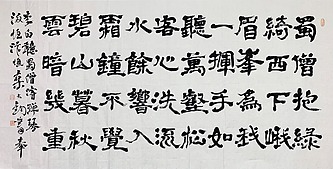 蜀僧抱綠
綺西下峨
眉峯為我
一揮手如
聽萬壑松
客心洗流
水餘響入
霜鐘不覺
碧山暮秋
雲暗幾重
李白聽蜀僧濬彈琴